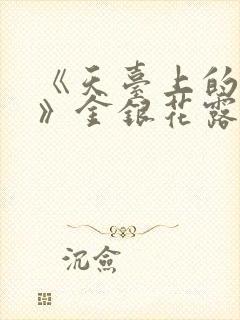 《天臺上的
》金銀花露
沉僉